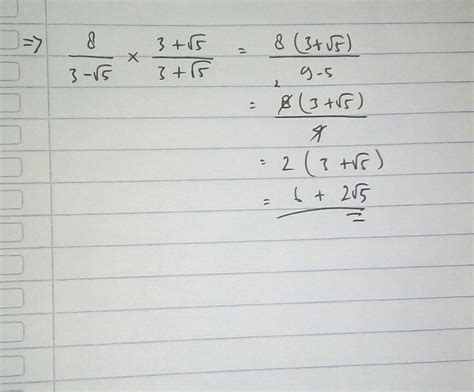 ⇒ 8/(3-√5) × (3+√5)/(3+√5) = 8(3+√5)/(9-5)
= 2 8(3+√5)/4
= 2(3+√5)
= 6+2√5